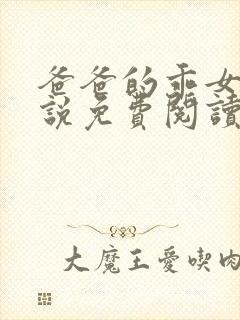 爸爸的乖女
說免費閱讀
大魔王愛喫肉